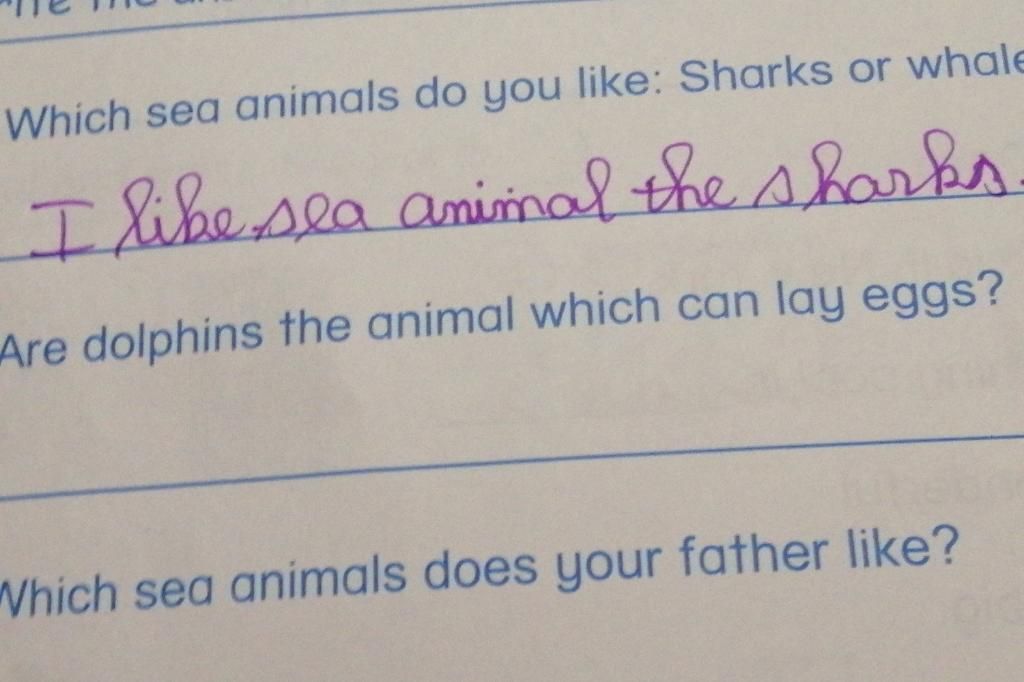 Which sea animals do you like: Sharks or whale
I like sea animal the sharks.
Are dolphins the animal which can lay eggs?
Which sea animals does your father like?